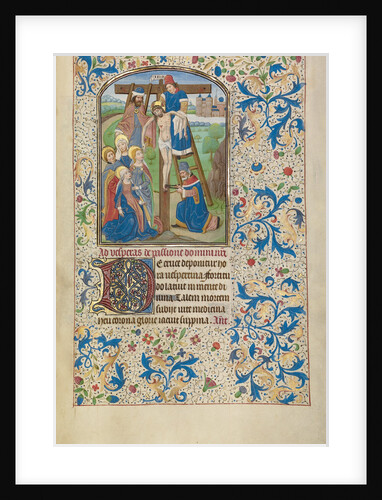 INRI
Ad vesperas de passione domini ūr
De cruce deponitur ho
ra vespertina fortitu
do latuit in mente di
uina Talem mortem
subijt vite medicina
heu corona glorie iacuit supina Añt